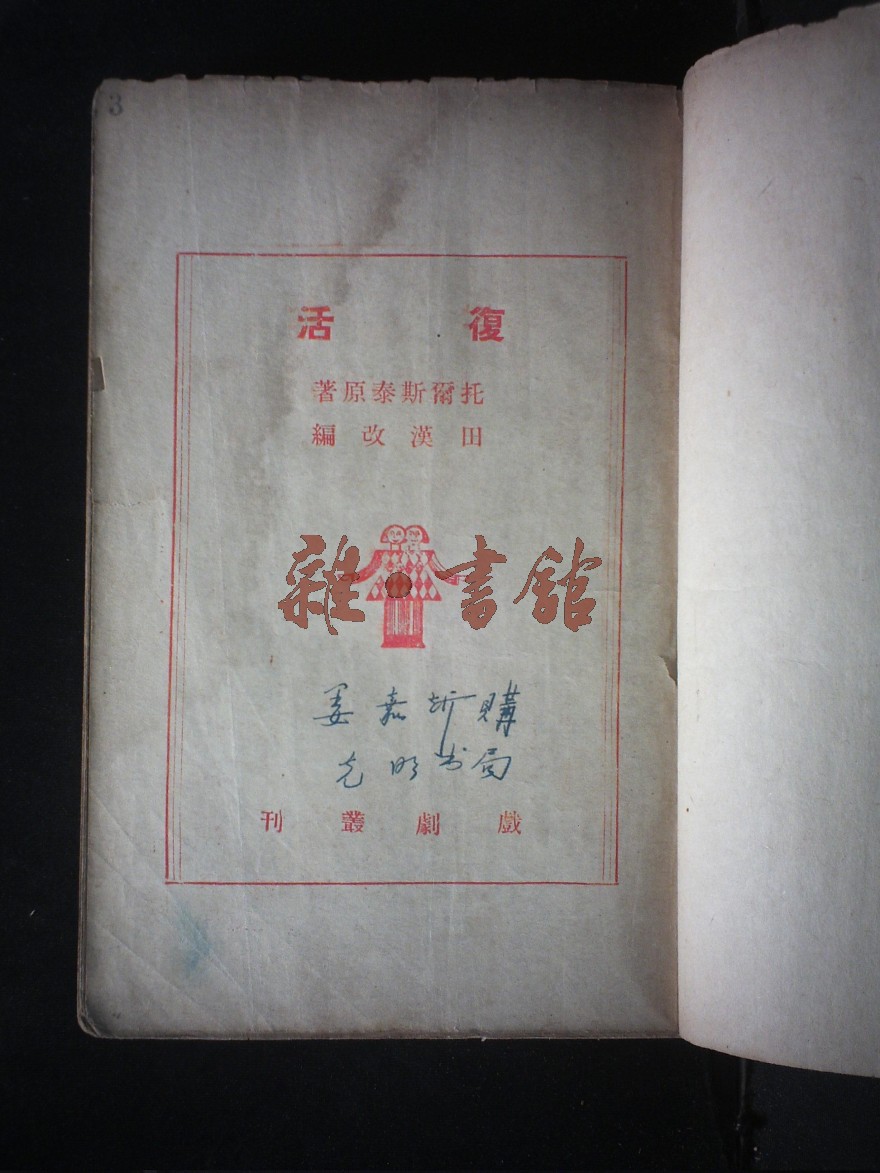 3
復活
托爾斯泰原著
田漢改編
雜·書館
姜嘉圻購
光明书局
戲劇叢刊